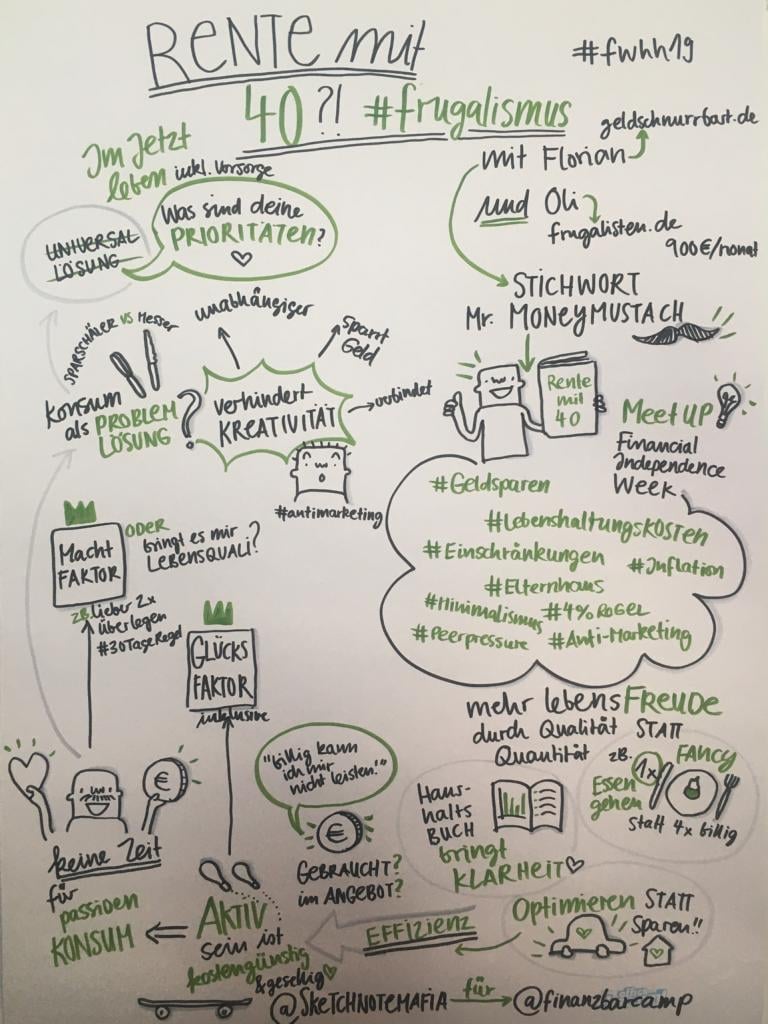 RENTE mit
40?! #frugalismus
#fwhh19
geldschnurrbart.de
mit Florian
und Oli
frugalisten.de
900€/monat
Im Jetzt
leben inkl. Vorsorge
Was sind deine
PRIORITÄTEN?
UNIVERSAL
LÖSUNG
STICHWORT
Mr. MONEYMUSTACH
SPARSCHÄLER VS Messer
Konsum
als PROBLEM
LÖSUNG?
unabhängiger
spart
Geld
verbindet
verhindert
KREATIVITÄT
#antimarketing
Rente
mit
40
MeetUP
Financial
Independence
Week
#Geldsparen
#LebenshaltungsKOSTEN
#Einschränkungen
#Inflation
#Elternhaus
#Minimalismus
#4%REGEL
#Peerpressure
#Anti-Marketing
Macht
FAKTOR
ODER
bringt es mir
LEBENSQUALI?
zB. Lieber 2x
überlegen
#30TageRegel
GLÜCKS
FAKTOR
inklusive
mehr lebensFREUDE
durch Qualität STATT
Quantität
zB. 1x FANCY
Essen
gehen
statt 4x billig
Haus-
halts
BUCH
bringt
KLARHEIT
"billig kann
ich mir
nicht leisten!"
€
€
GEBRAUCHT?
im ANGEBOT?
keine Zeit
für
passiven
KONSUM
AKTIV
sein ist
kostengünstig
& gesellig
EFFIZIENZ
Optimieren STATT
Sparen!!
@SKETCHNOTEMAFIA für @finanzbarcamp